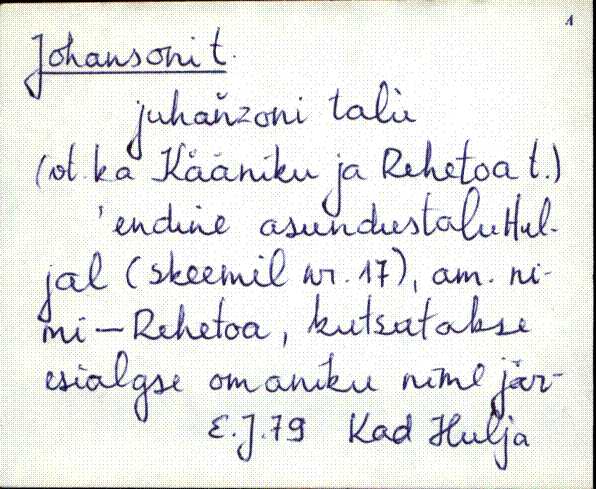 1
Johansoni t.
juhaňzoni talù
(vt. ka Kääniku ja Rehetoa t.)
'endine asundustalu Hul-
jal (skeemil nr. 17), am. ni-
mi – Rehetoa, kutsutakse
esialgse omaniku nime jär-
E.J.79 Kad Hulja